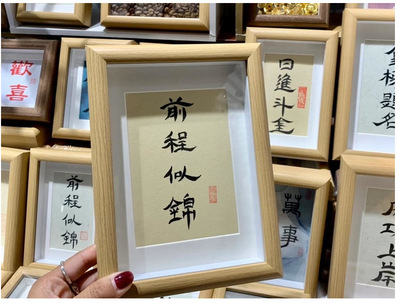 前程似錦
歡喜
日進斗金
金榜題名
前程似錦
萬事
成功上岸